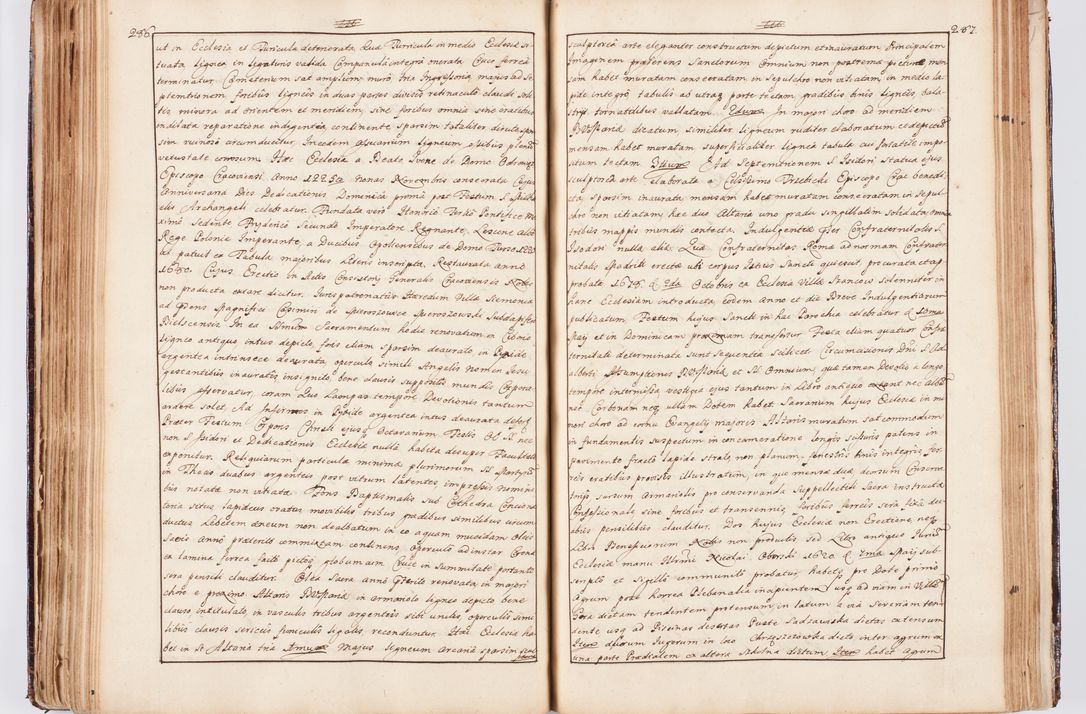 286.
ut in Ecclesia et Turricula deteriorata, Quæ Turricula in medio Ecclesiæ si-
tuata lignea in ligaturis valida Campanula integra onerata Cruce ferrea
terminatur. Cœmeterium sat amplum muro tria Ingressoria majus ad Se-
ptemtrionem foribus ligneis in duas partes divisis retinaculo claudi soli-
tis minora ad Orientem et meridiem, sine foribus omnia sine cratibus
mali lata reparatione indigentia continente sparsim totaliter
sim ruinoso circumducitur. Incedem ligneum ossibus plenum
vetustate corrosum. Hæc Ecclesia a Beato Ivone de Domo Odrowąż
Episcopo Cracoviensi Anno 1225to nonas Novembris consecrata Cujus
Anniversaria Dies Dedicationis Dominica proxima post Festum S. Micha-
elis Archangeli celebratur. Fundata vero Honorio Tertio Pontifice Ma-
ximo Sedente Friderico Secundo Imperatore Regnante, Lescone albo
Rege Poloniæ Imperante, a Ducibus Opoliensibus de Domo 1220
ut patet ex Tabula majoribus literis inscripta. Restaurata anno
1680. Cujus Erectio in Actis Consistorij Generalis Cracoviensis Nobis
non producta extare dicitur. Juris patronatus Hæredum Villæ Siemonia
ad præsens Magnifici Casimiri de Mieroszowice Mieroszowski Subdapiferi
Bielscensis. In ea Sanctissimum Sacramentum hodie renovatum in Ciborio
ligneo antiquo intus depicto, foris etiam sparsim deaurato, in Pyxide
argentea intrinsece deaurata, operculo simili Angelis nomen Jesu
gestantibus inauratis insignito, bene clausis suppositis mundis Corpora-
libus asservatur, coram Quo Lampas tempore Devotionis tantum
ardere solet. Ad Infirmos in Pyxide argentea intus deaurata defert
Præter Festum Corporis Christi ejusque Octavarium Festis OO. SS. nec
non S. Isidori et Dedicationis Ecclesiæ nulla habita desuper Facultate
exponitur. Reliquiarum particulæ minimæ plurimorum SS. Martyrum
in Thecis duabus argenteis post vitrum latentes impressis nomina
tis notatæ non vitiatæ. Fons Baptismalis sub Cathedra Conciona-
toria situs lapideus cratis movibilis tribus gradibus similibus circum
ductus Lebetem æneum non dealbatum in eo aquam mucidam oleis
Sacris Anno præterito commixtam continens, operculo ad instar Coronæ
ex lamina ferrea facto picto, globumam Cruce in summitate portante
sera pensili clauditur. Olea Sacra anno præterito renovata in majori
choro e proximo Altaris BVMariæ in armariolo ligneo depicto bene
clauso intitulato, in vasculis tribus argenteis sibi unitis, operculis simi
libus clausis sericeis funiculis ligatis reconduntur. Hæc Ecclesia ha-
bet in se Altaria tria. Primum Majus ligneum Arcana sparsim scul
ptoria
287.
sculptoria arte eleganter constructum depictum et inauratum Principalem
Imaginem præferens Sanctorum Omnium non postrema picturæ men
sam habet muratam consecratam in Sepulchro non vitiatam, in medio la
pide integro tabulis ad utramque parte tectam, gradibus binis ligneis, bala-
stris tornatilibus vallatam. 2dum In majori choro ad meridiem
BVMariæ dicatum similiter ligneum ruditer elaboratum et depictum
mensam habet muratam superficialiter lignea tabula cui portatile impo-
situm tectam. 3tium Ad Septemtrionem S. Isidori Statua ejus
sculptoria arte elaborata a Celsissimo Trzebicki Episcopo Crac benedi
cta, sparsim inaurata, mensam habet muratam consecratam in Sepul
chro non vitiatam, hæc duo Altaria uno gradu singillatim solidata, omnia
tribus mappis mundis contecta. Indulgentia per Confraternitatis S.
Isidori nulla alia Quæ Confraternitas Romæ ad normam Confrater
nitatis Madriti erectæ ubi corpus Istius Sancti quiescit procurata et ap
probata 1675. D 2da Octobris ex Ecclesia Villæ Francois solenniter in
hanc Ecclesiam introducta eodem Anno et die Breve Indulgentiarum
publicatum. Festum hujus Sancti in hac Parochia celebratur D 10ma
Maij et in Dominicam proximam transfertur. Festa etiam quatuor Confra
ternitati determinata sunt sequentia scilicet Circumcisionis Dni S. Ad
alberti Assumptionis BVMariæ et SS. Omnium, quæ tamen Devotio a longo
tempore intermissa vestigia ejus tantum in Libro antiquo extant nec albo
nec Carbonam neque ullam Dotem habet Sacrarium hujus Ecclesiæ in mi
nori choro ad cornu Evangelij majoris Altaris muratum sat commodum
in fundamentis suspectum in concameratione longis scissuris patens in
pavimento fracto lapide strato non planum, fenestris binis integris fer
reis cratibus provisis illustratum, in quo mensæ duæ deorsum
torijs sursum Armariolis pro conservanda Suppellectili Sacra instructa
Confessionale sine foribus et transennis, foribus ferreis sera fixa du-
abus pensilibus clauditur. Dos hujus Ecclesiæ non Erectione neque
Libro Beneficiorum Nobis non productis sed Libro antiquo Jurium
Ecclesiæ manu Nicolai Oborski 1620. D 7ma Maij sub
scripto et Sigillo communito probatur, habet pro Dote primo
Agrum post horrea Plebanalia incipientem usque ad viam in Villam
Gora dictam tendentem protensum, in latum a via Sewieriam ten
dente usque ad Piscinas desertas Puste Sadzawska dictas extensum
Item duorum Jugerum in loco Chrząszczowska dicto inter agrum ex
una parte Prædialem ex altera Szkolna dictum Item habet Agrum